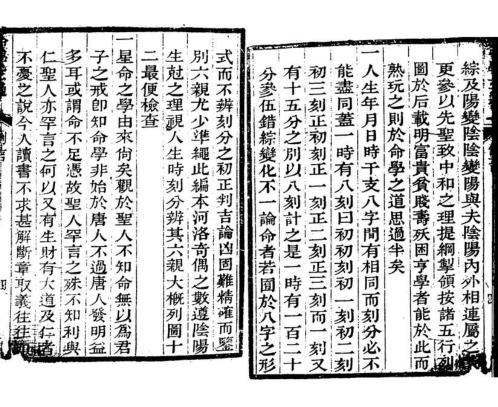 綜及陽變陰陰變陽與夫陰陽內外相連屬之
更參以先聖致中和之理提綱挈領按諸五行列
圖於后載明富貴貧賤壽夭困亨學者能於此而
熟玩之則於命學之道思過半矣
一人生年月日時干支八字間有相同而刻分必不
能盡同蓋一時有八刻曰初初刻初一刻初二刻
初三刻正初刻正一刻正二刻正三刻而一刻又
有十五分之別以八刻計之是一時有一百二十
分參伍錯綜變化不一論命者若囿於八字之形
式而不辨刻分之初正判吉論凶固難精確而鑒
別六親尤少準繩此編本河洛奇偶之數遵陰陽
生尅之理視人生時刻分辨其六親大槪列圖十
二最便檢查
一星命之學由來尙矣觀於聖人不知命無以為君
子之戒卽知命學非始於唐人不過唐人發明益
多耳或謂命不足憑故聖人罕言之殊不知利與
仁聖人亦罕言之何以又有生財有大道及仁者
不憂之說今人讀書不求甚解斷章取義往往